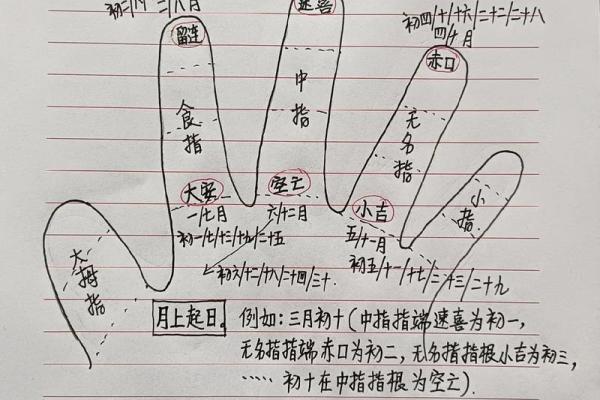 二/八月
速喜
初四/十/十六/二十二/二十八
四/十月
留连
赤口
食指
中指
无名指
小指
大拇指
大安
一/七月
初一/七/十三/十九/二十五
空亡
六/十二月
初六/十二/十八/二十四/三十.
小吉
五/十一月
初五/十一/十七/二十三/二十九
月上起日.
例如:三月初十(中指指端速喜为初一,
无名指指端赤口为初二,无名指指根小吉为初三,
……初十在中指指根为空亡).